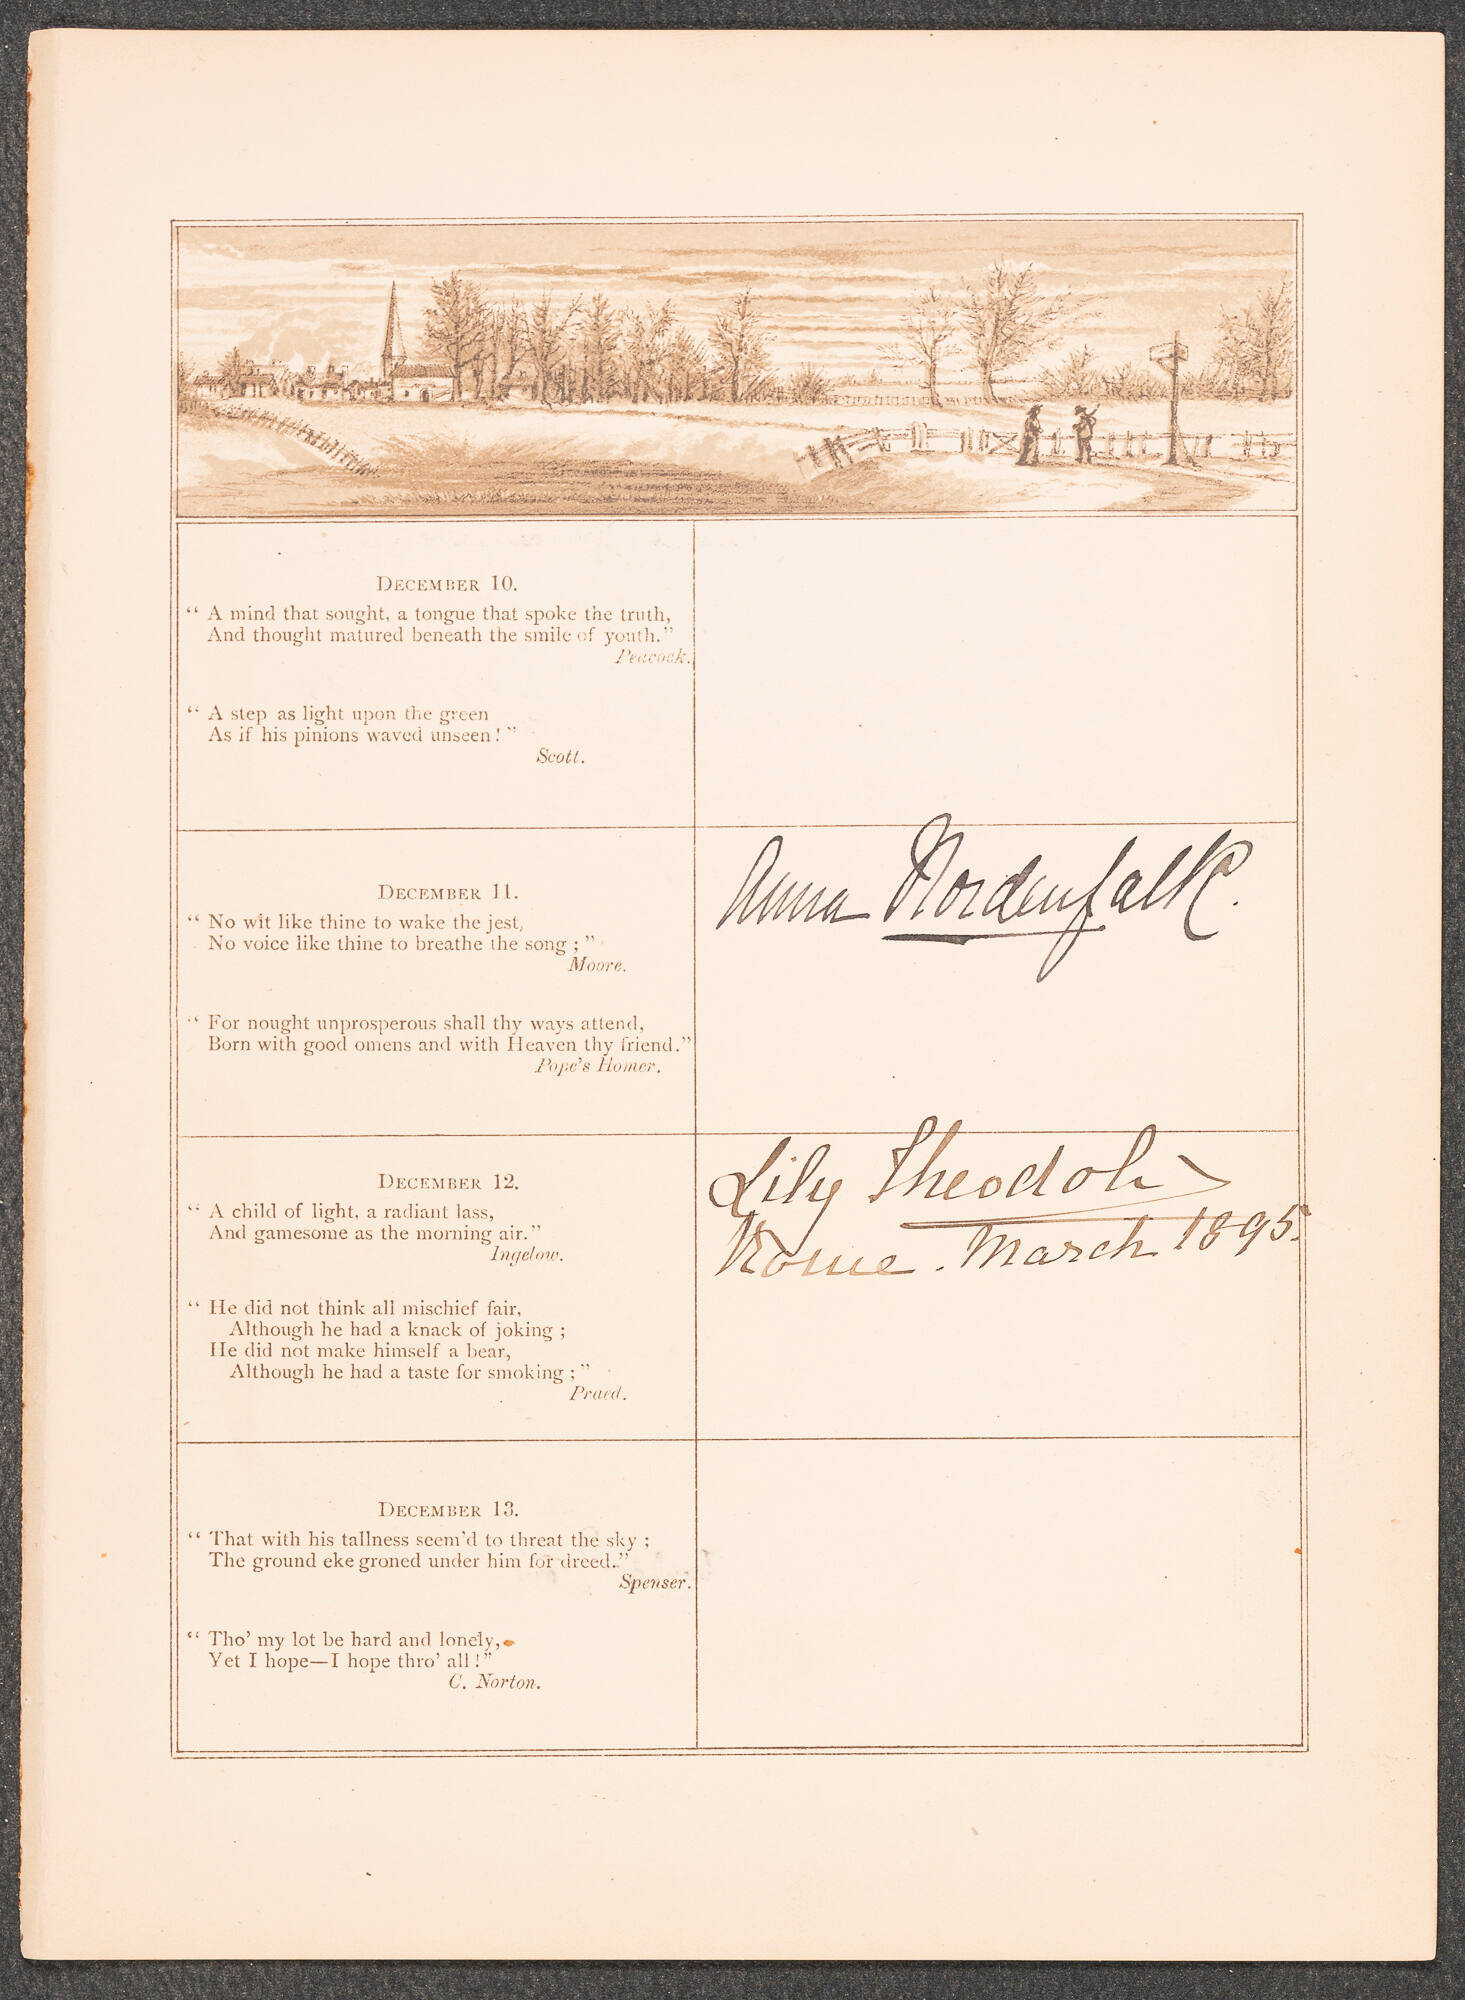 DECEMBER 10.
“ A mind that sought, a tongue that spoke the truth,
And thought matured beneath the smile of youth.”
Peacock.
“ A step as light upon the green
As if his pinions waved unseen ! ”
Scott.
DECEMBER 11.
“ No wit like thine to wake the jest,
No voice like thine to breathe the song ; ”
Moore.
“ For nought unprosperous shall thy ways attend,
Born with good omens and with Heaven thy friend.”
Pope’s Homer.
Anna Nordenfalk.
DECEMBER 12.
“ A child of light, a radiant lass,
And gamesome as the morning air.”
Ingelow.
“ He did not think all mischief fair,
Although he had a knack of joking ;
He did not make himself a bear,
Although he had a taste for smoking ; ”
Praed.
Lily Theodoli
Rome . March 1895.
DECEMBER 13.
“ That with his tallness seem’d to threat the sky ;
The ground eke groned under him for dreed.”
Spenser.
“ Tho’ my lot be hard and lonely,
Yet I hope—I hope thro’ all ! ”
C. Norton.